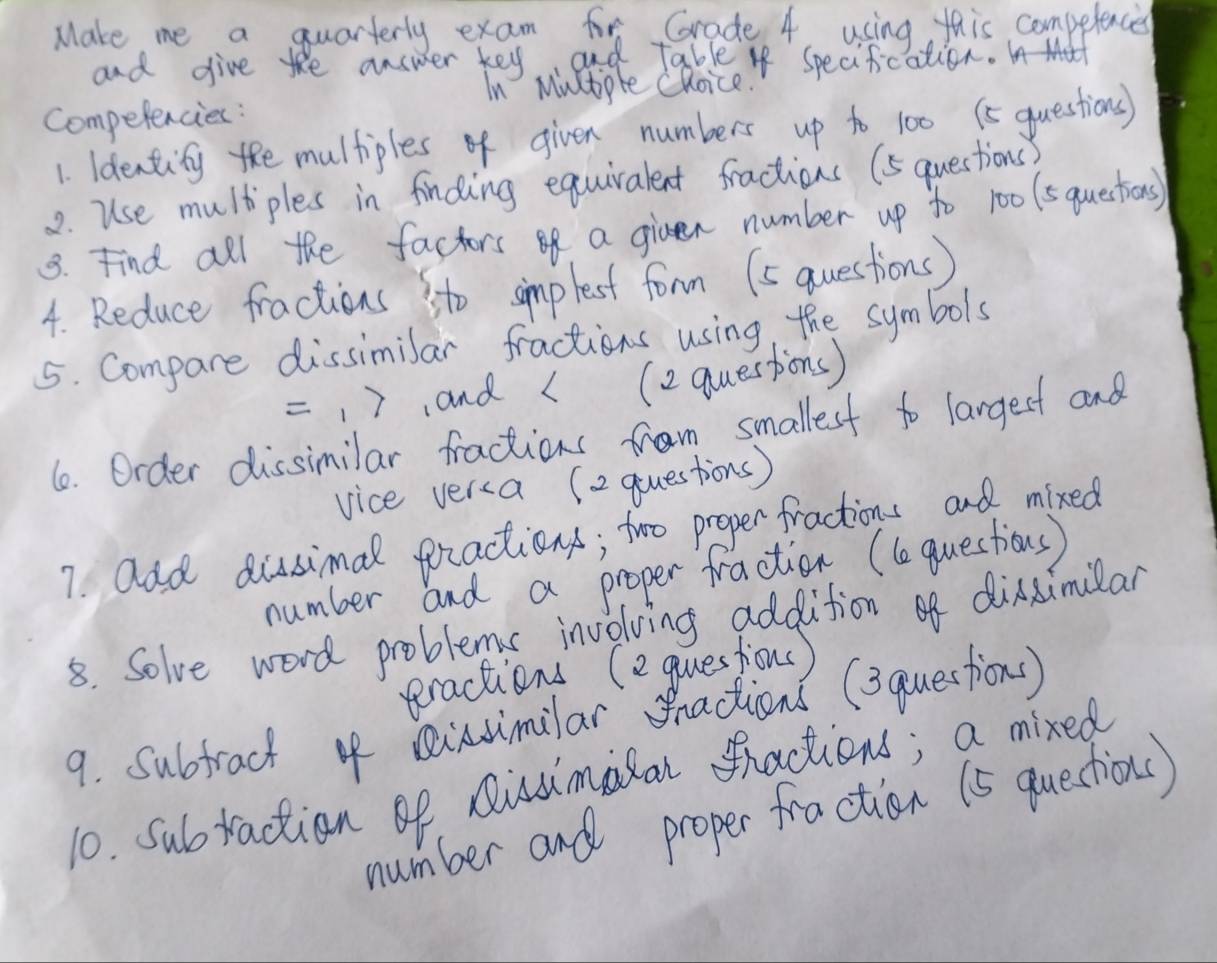 Make me a quarterly exam for Grade 4 using this competencies
and give the answer key and Table of Specification.
In Multiple Choice.
Competencies:
1. Identify the multiples of given numbers up to 100 (5 questions)
2. Use multiples in finding equivalent fractions (5 questions)
3. Find all the factors of a given number up to 100 (5 questions)
4. Reduce fractions to simplest form (5 questions)
5. Compare dissimilar fractions using the symbols
= , > , and < (2 questions)
6. Order dissimilar fractions from smallest to largest and
vice versa (2 questions)
7. Add dissimal fractions; two proper fractions and mixed
number and a proper fraction (6 questions)
8. Solve word problems involving addition of dissimilar
fractions (2 questions)
9. Subtract of Dissimilar Fractions (3 questions)
10. Subtraction of Dissimilar Fractions; a mixed
number and proper fraction (5 questions)